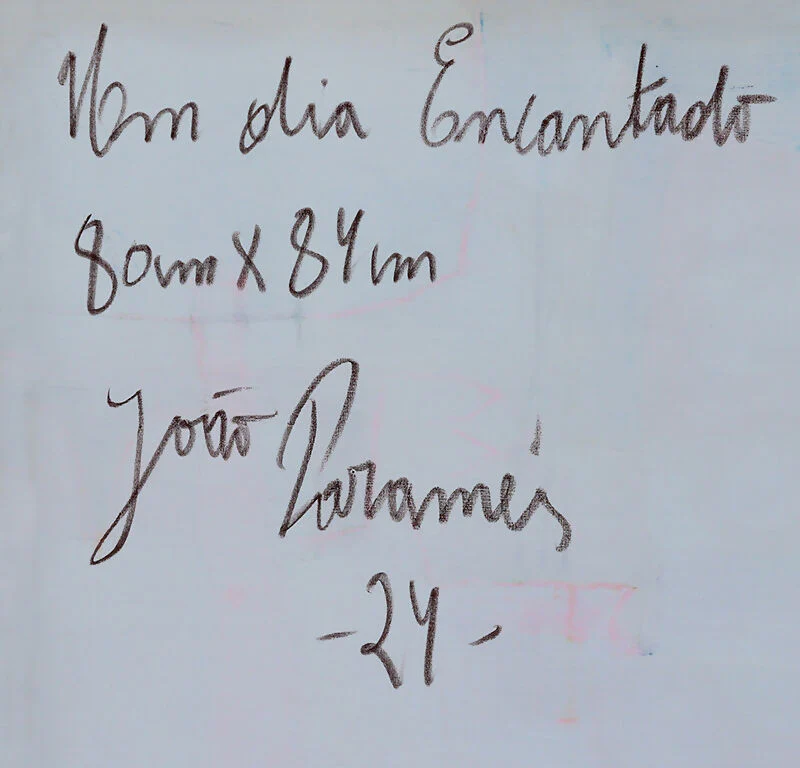 Um dia Encantado
80cm X 84cm
João Paramés
-24-